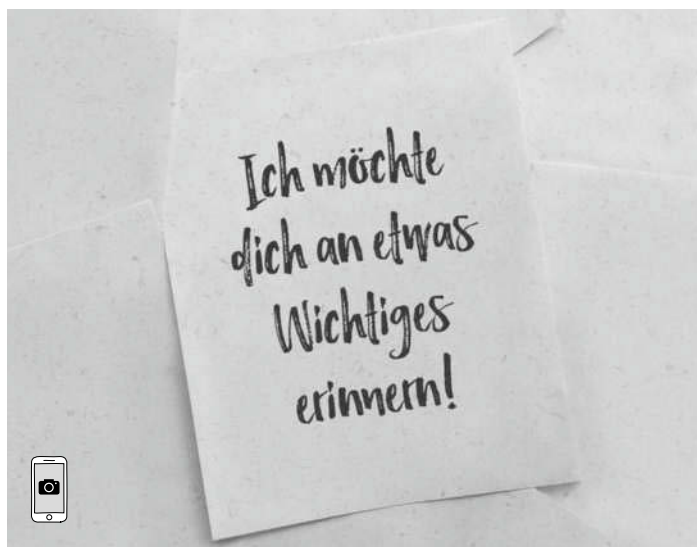 Ich möchte
dich an etwas
Wichtiges
erinnern!